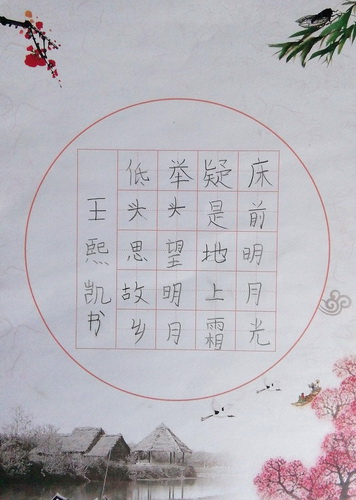 床前明月光
疑是地上霜
举头望明月
低头思故乡
王熙凯书